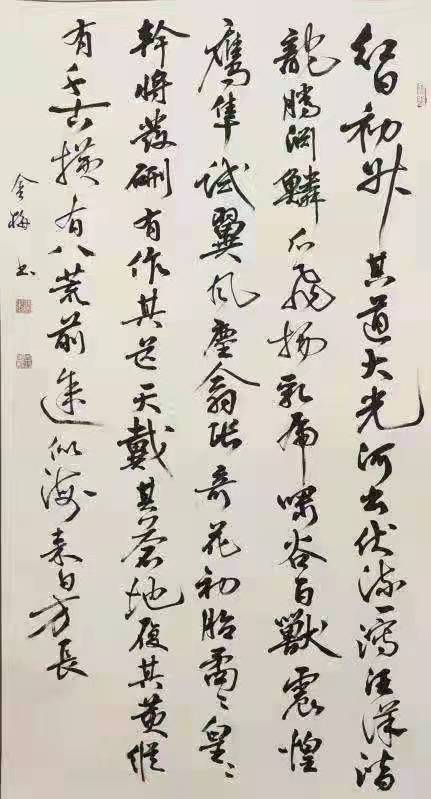 紅日初升其道大光河出伏流一瀉汪洋潛
龍騰渊鱗爪飛揚乳虎嘯谷百獸震惶
鷹隼試翼風塵翕張奇花初胎矞々皇々
幹將發硎有作其芒天戴其蒼地履其黃縱
有千古横有八荒前途似海來日方長
金梅书